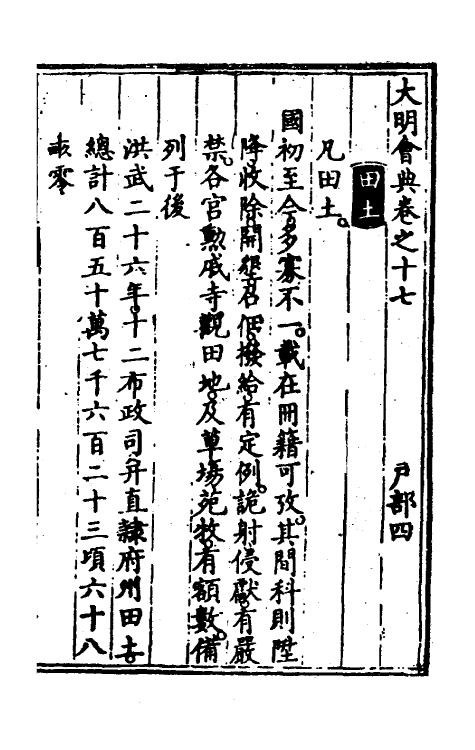 大明會典卷之十七 戶部四
田土
凡田土。
國初至今多寡不一。載在冊籍可攷。其間科則陞
降收除開墾召佃撥給有定例。詭射侵獻有嚴
禁。各宮勳戚寺觀田地。及草場苑牧。有額數。備
列于後
洪武二十六年。十二布政司幷直隸府州田土
總計八百五十萬七千六百二十三頃六十八
畝零